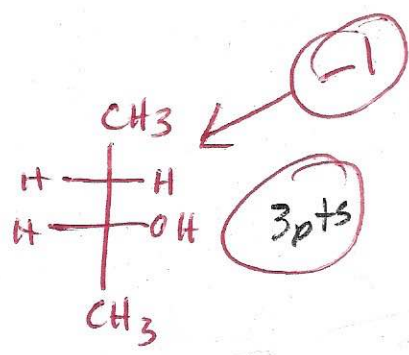 -1
CH3
H H
H OH
3pts
CH3